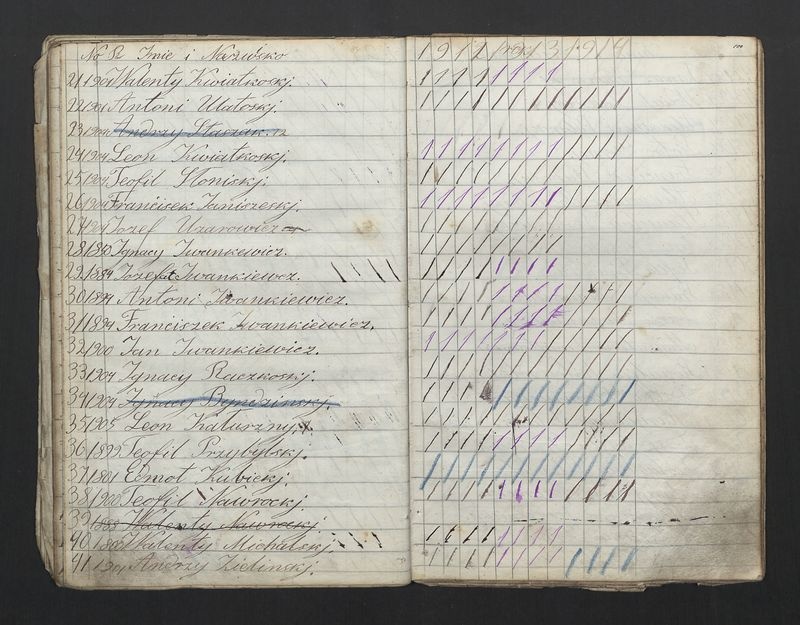 No R Imie i Nazwisko
21 1901 Walenty Kwiatkoskj.
22 1901 Antoni Ulatoskj.
23 1904 Andrzy Staszak. 12
24 1904 Leon Kwiatkoskj.
25 1904 Teofil Sloniskj.
26 1904 Francisek Janiszeskj.
27 1904 Jozef Uzarowicz
28 1880 Ignacy Iwankewicz.
22 1884 Jozef Iwankiewcz.
30 1894 Antoni Iwankiewicz.
31 1894 Franciszek Iwankiewicz.
32 1900 Jan Iwankiewicz.
33 1904 Ignacy Raczkoskj.
34 1904 Ignac Bendzinskj.
35 1905 Leon Katurzny.
36 1899 Teofil Przybylskj.
37 1901 Edmot Kubickj.
38 1900 Teofil Nawrockj
39 1888 Walenty Nawrockj
40 1880 Walenty Michalskj
41 1901 Andrzy Zielinskj.
1912 rok 1 3 1914